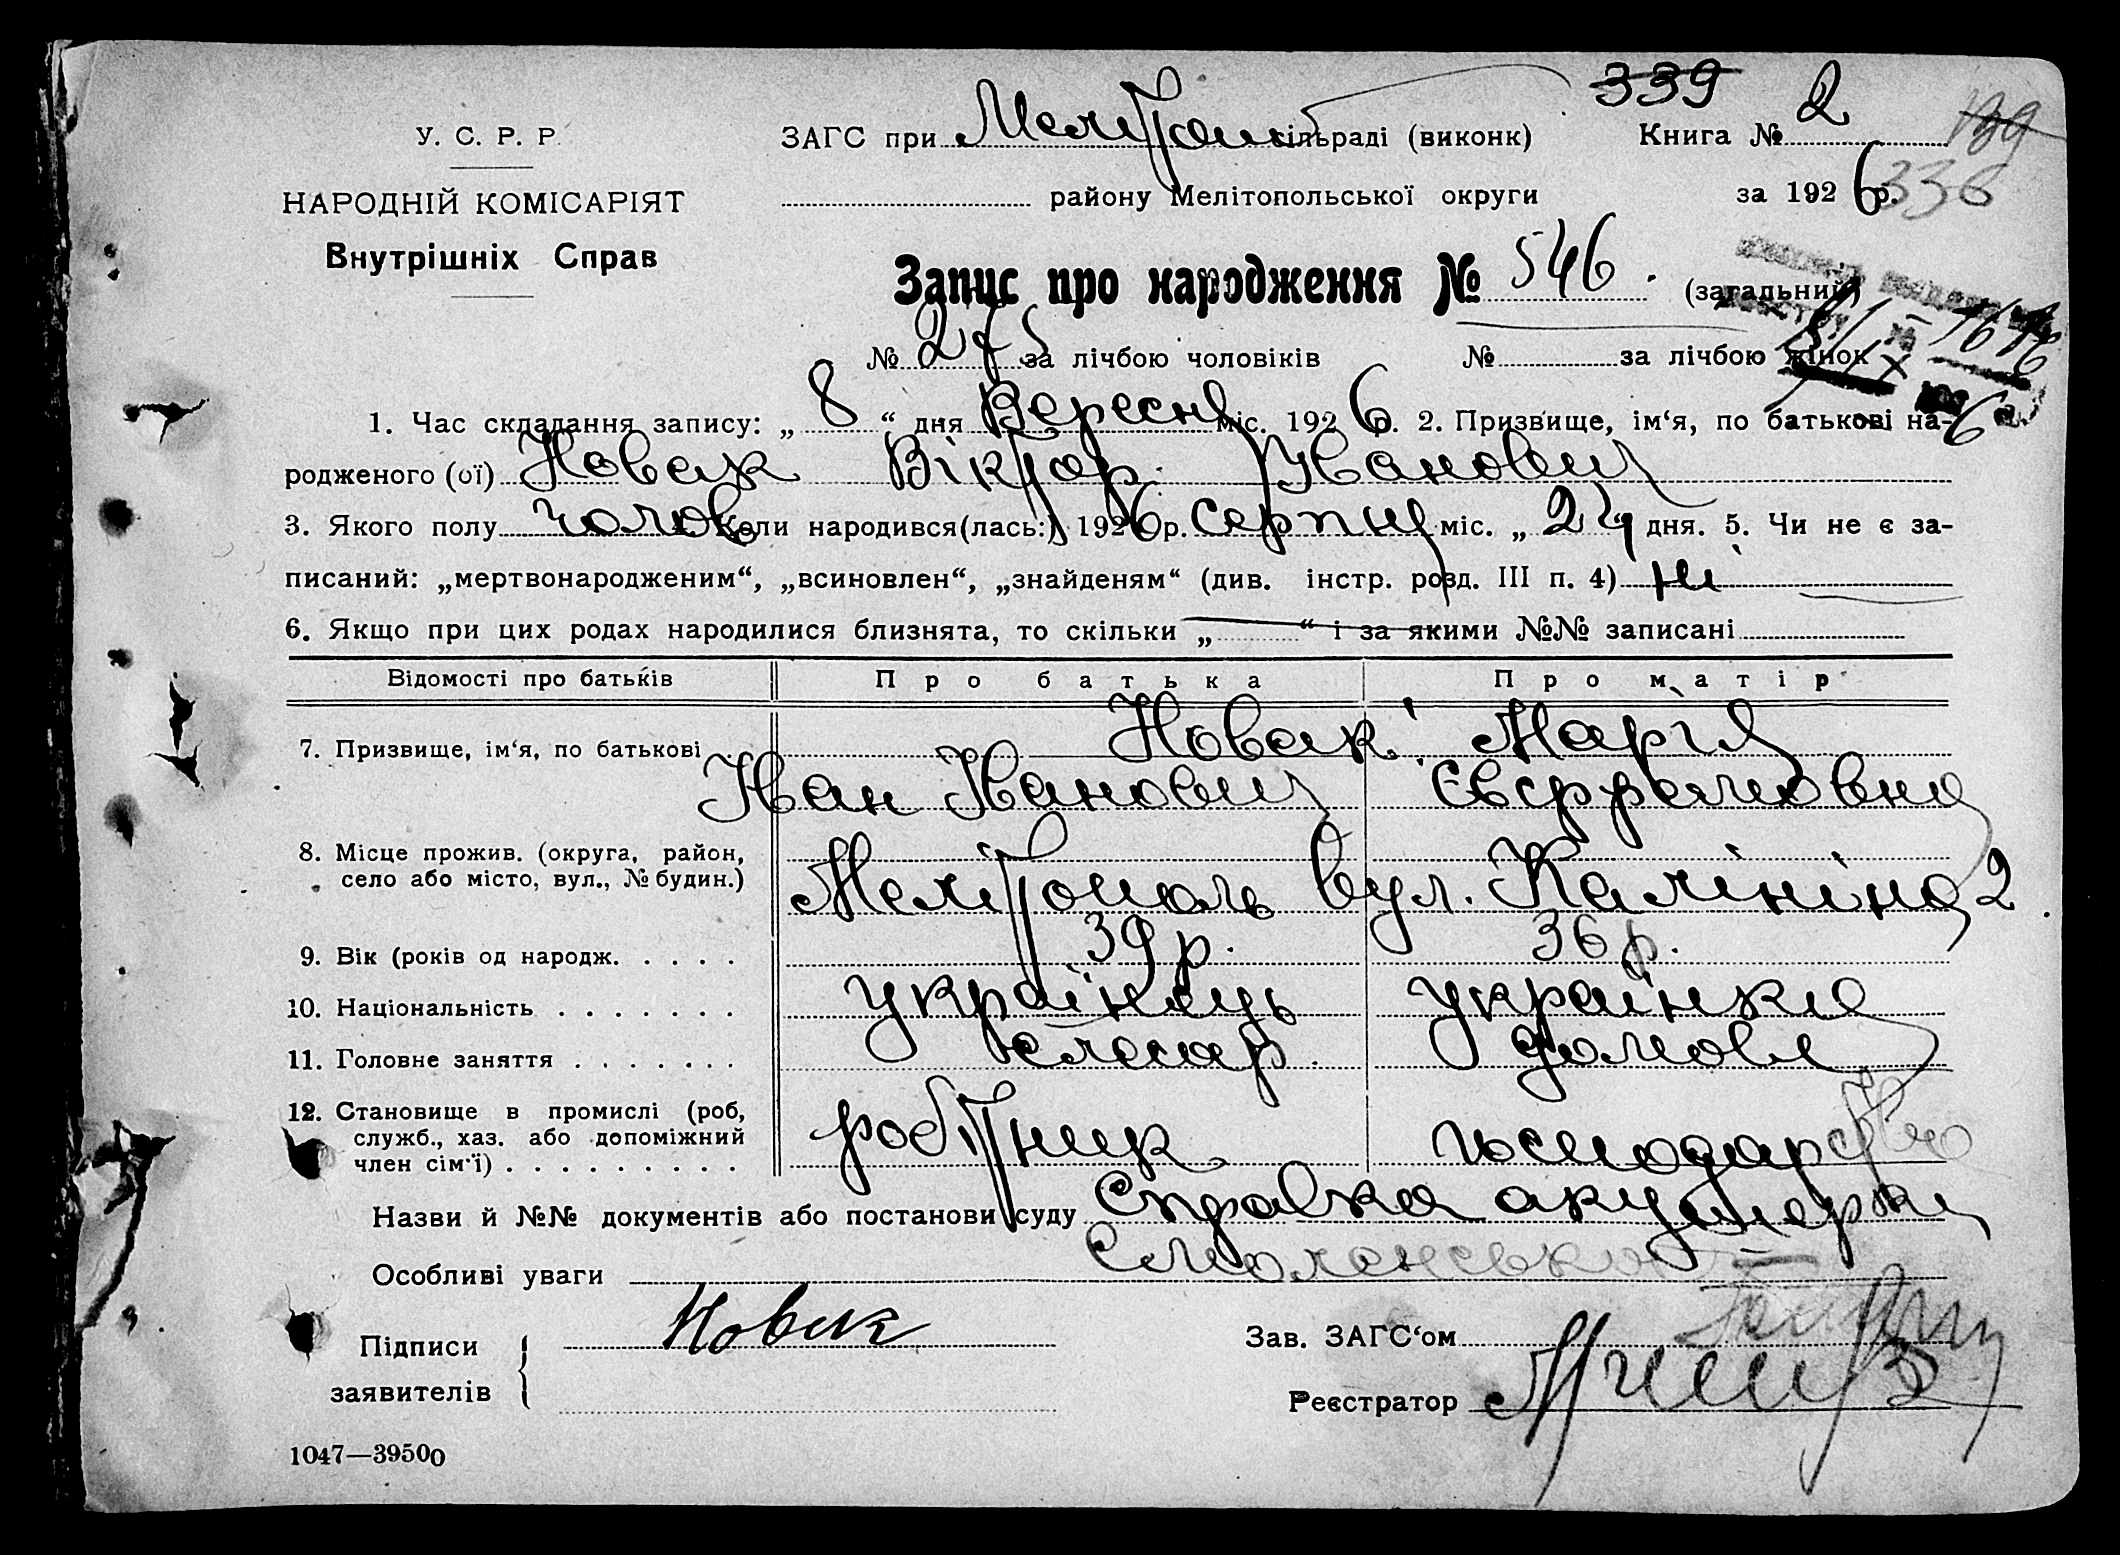 339
У. С. Р. Р.
ЗАГС при Мелітоп сільраді (виконк) Книга № 2
139
336
НАРОДНІЙ КОМІСАРІЯТ
району Мелітопольської округи за 1926 р.
Внутрішніх Справ
Запис про народження № 546. (загальний)
№ 275 за лічбою чоловіків № за лічбою жінок
1. Час складання запису: „8“ дня Вересня міс. 1926 р. 2. Призвище, ім‘я, по батькові на-
родженого (ої) Новак Віктор Іванович
3. Якого полу чолов 4. Коли народився(лась:) 1926 р. серпня міс. „24“ дня. 5. Чи не є за-
писаний: „мертвонародженим“, „всиновлен“, „знайденям“ (див. інстр. розд. III п. 4) ні
6. Якщо при цих родах народилися близнята, то скільки „ “ і за якими №№ записані
Відомості про батьків Про батька Про матір
7. Призвище, ім‘я, по батькові Новак Марія
Іван Іванович
8. Місце прожив. (округа, район,
село або місто, вул., № будин.) Мелітополь вул. Калініна 2
9. Вік (років од народж. . . . . 39 р. 36 р.
10. Національність . . . . . . . українець українка
11. Головне заняття . . . . . . . слесар домове
12. Становище в промислі (роб,
служб., хаз. або допоміжний
член сім‘ї) . . . . . . . . . робітник господарство
Назви й №№ документів або постанови суду Справка акушерки
Особливі уваги Смоленської
Підписи
заявителів
Новак
Зав. ЗАГС‘ом
Реєстратор
1047—39500